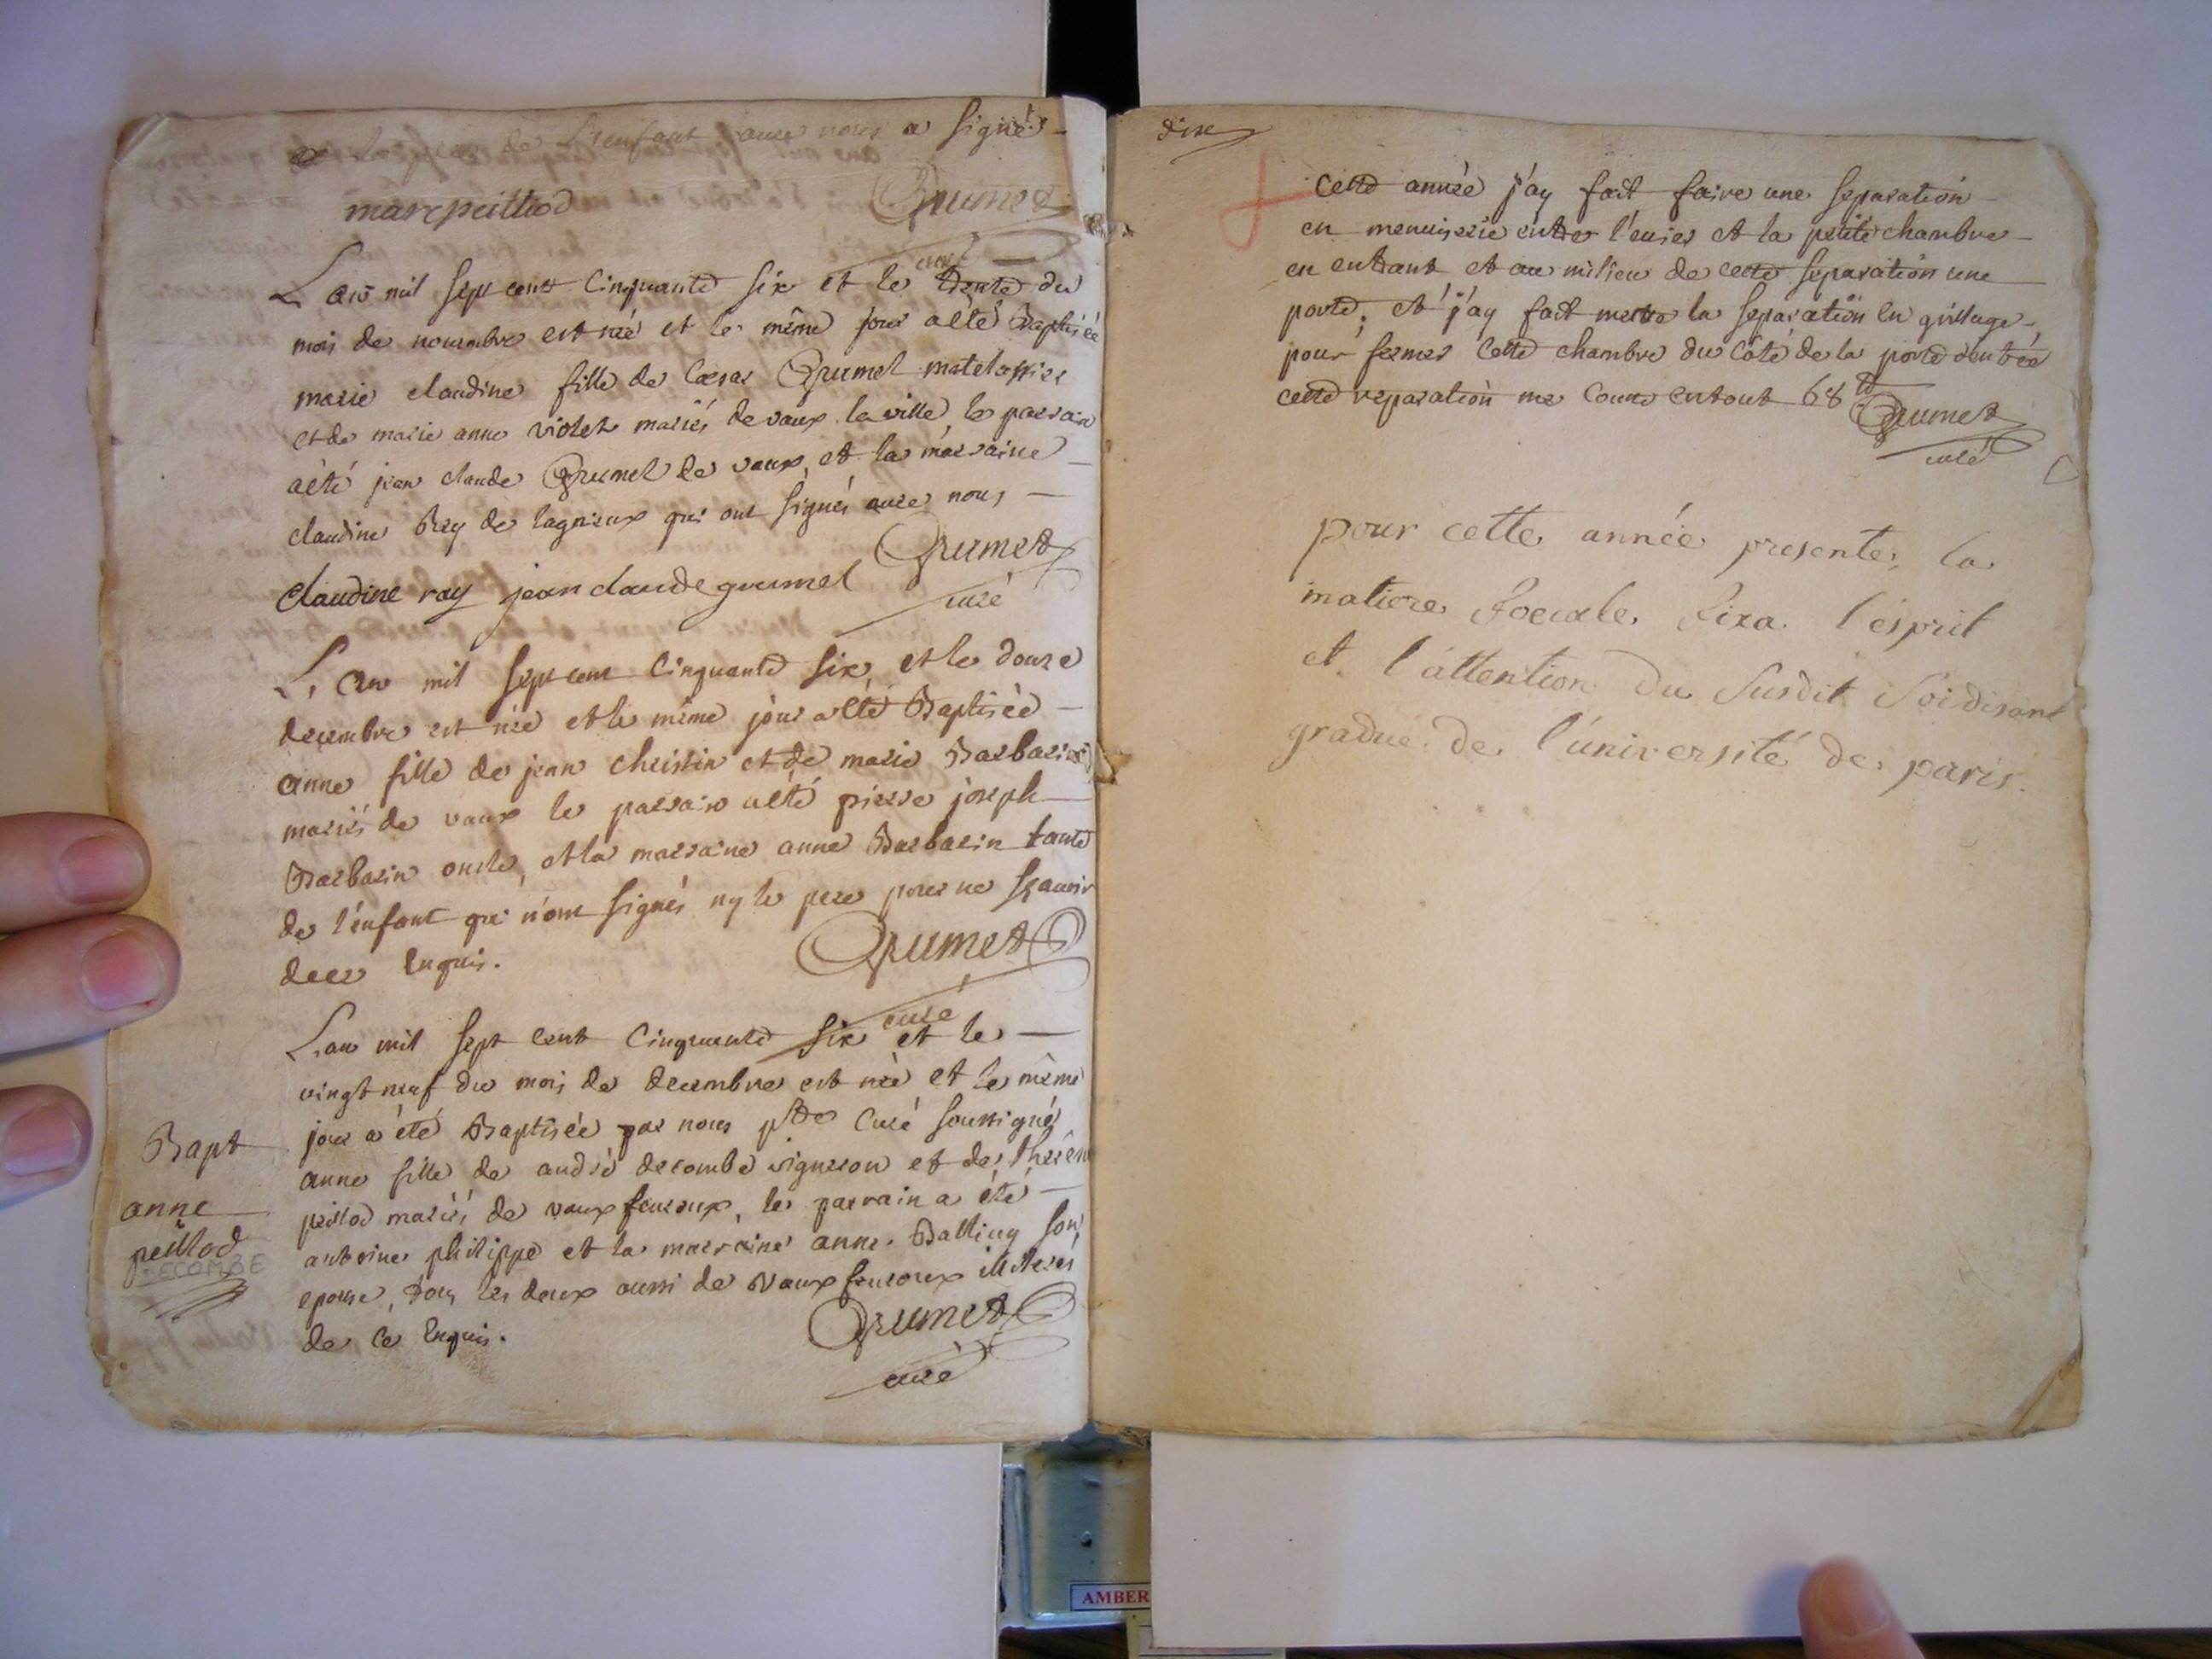 de l'enfant avec nous a signé
Grumet
curé
marc peillod
L'an mil sept cent cinquante six et le trente du
mois de novembre est née et le même jour a été Baptisée
marie claudine fille de Cæsar Grumel matelassier
et de marie anne violet mariés de vaux la ville, le parrain
a été jean claude Grumel de vaux, et la marraine
claudine Rey de lagnieux qui ont signés avec nous
Grumet
curé
claudine ray jean claude grumel
L'an mil sept cent cinquante six, et le douze
decembre est née et le même jour a été Baptisée
anne fille de jean christin et de marie Barbarin
mariés de vaux le parrain a été pierre joseph
Barbarin oncle, et la marraine anne Barbarin tante
de l'enfant qui n'ont signés ny le pere pour ne sçavoir
de ce enquis.
Grumet
curé
L'an mil sept cent cinquante six et le
vingt neuf du mois de decembre est née et le même
jour a été Baptisée par nous ptre curé soussigné
anne fille de andré decombe vigneron et de therese
peillod mariés de vaux fevroux, le parrain a été
antoine philippe et la marraine anne Balliuy son
epouse, tous les deux aussi de Vaux fevroux illiterés
de ce enquis.
Grumet
curé
Bapt
anne
peillod
DECOMBE
dixe
Cette année j'ay fait faire une separation
en menuiserie entre l'euier et la petite chambre
en entrant et au milieu de cette separation une
porte; et j'ay fait mettre la separation en grillage
pour fermer cette chambre du côté de la porte d'entrée
cette reparation me coute en tout 68 tt
Grumet
curé
pour cette année presente, la
matiere foecale fixa l'esprit
et l'attention du susdit soidisant
gradué de l'université de paris.
AMBER